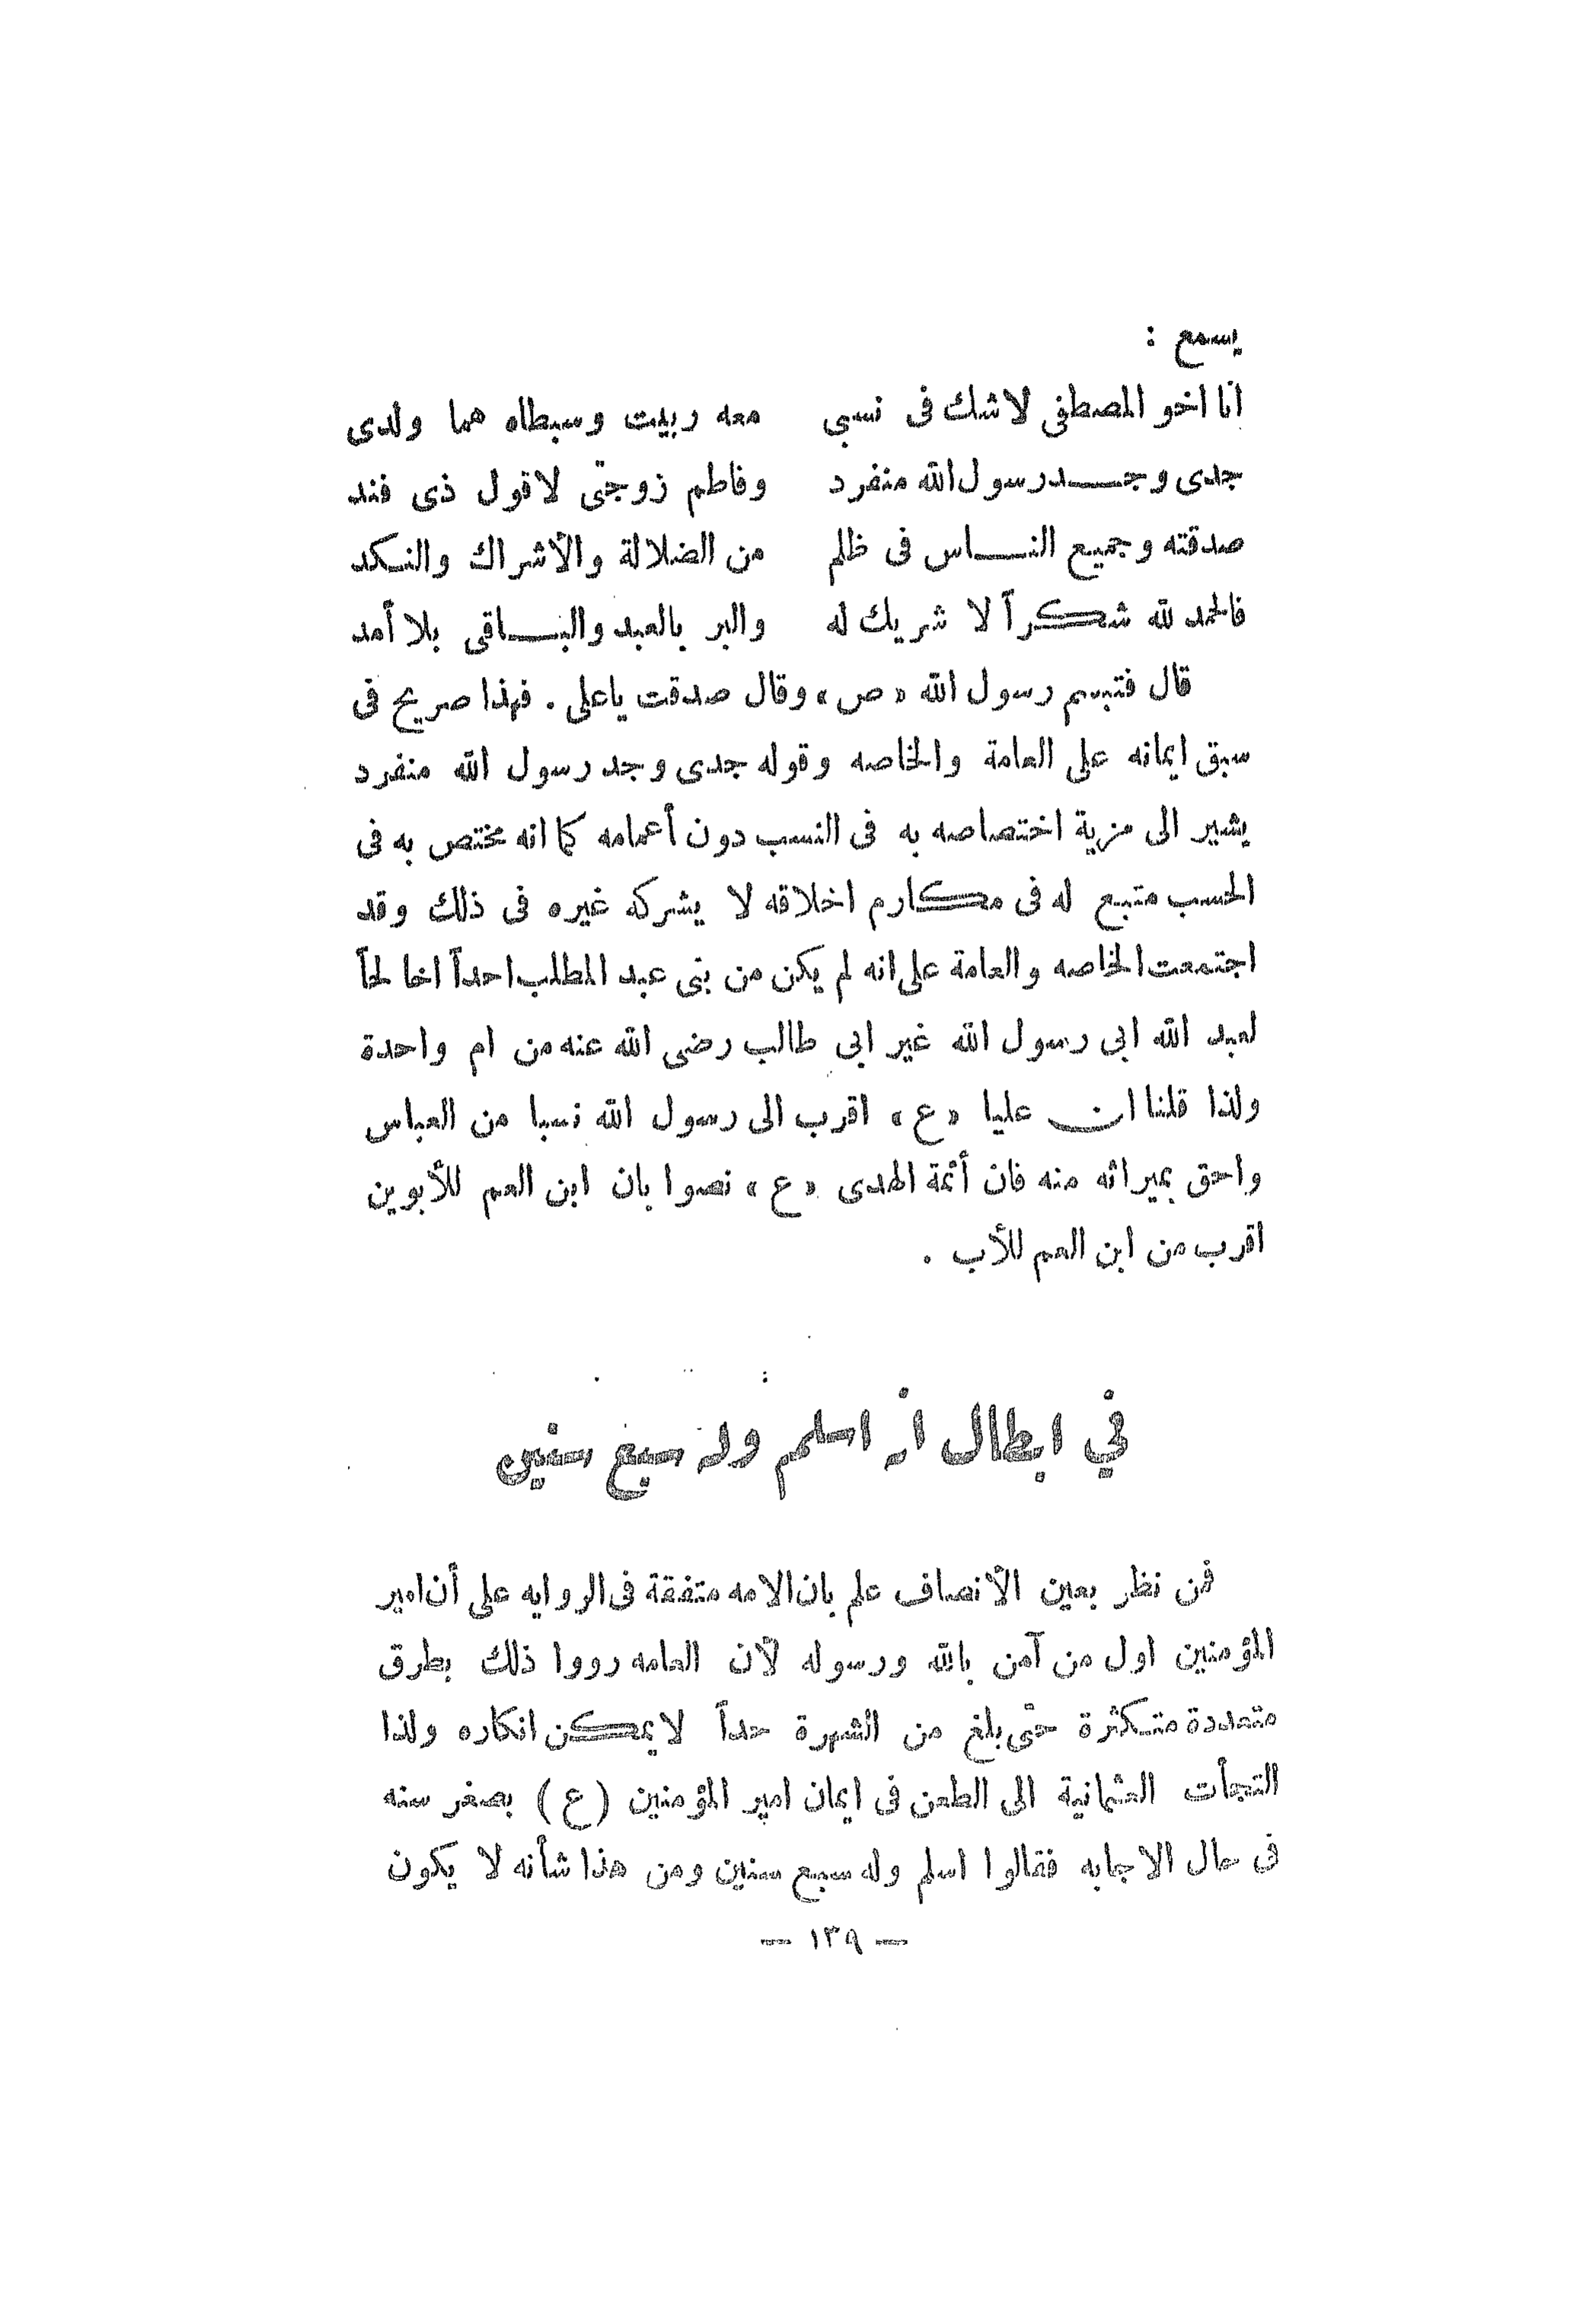 يسمع :
انا اخو المصطفى لاشك فى نسبى معه ربيت وسبطاه هما ولدى
جدى وجــد رسول الله منفرد وفاطم زوجتى لاقول ذى فند
صدقته وجميع النــاس فى ظلم من الضلالة والأشراك والنكد
فالحمد لله شكراً لا شريك له والبر بالعبد والبــاقى بلا أمد
قال فتبسم رسول الله « ص » وقال صدقت ياعلى . فهذا صريح فى
سبق ايمانه على العامة والخاصه وقوله جدى وجد رسول الله منفرد
يشير الى مزية اختصاصه به فى النسب دون أعمامه كما انه مختص به فى
الحسب متبع له فى مكارم اخلاقه لا يشركه غيره فى ذلك وقد
اجتمعت الخاصه والعامة على انه لم يكن من بنى عبد المطلب احداً اخا لحاً
لعبد الله ابى رسول الله غير ابى طالب رضى الله عنه من ام واحدة
ولذا قلنا ان عليا « ع » اقرب الى رسول الله نسبا من العباس
واحق بميراثه منه فان أئمة الهدى « ع » نصوا بان ابن العم للأبوين
اقرب من ابن العم للأب .
في ابطال انه اسلم وله سبع سنين
فمن نظر بعين الأنصاف علم بان الامه متفقة فى الروايه على أن امير
المؤمنين اول من آمن بالله ورسوله لأن العامه رووا ذلك بطرق
متعددة متكثرة حتى بلغ من الشهرة حداً لايمكن انكاره ولذا
التجأت العثمانية الى الطعن فى ايمان امير المؤمنين (ع) بصغر سنه
فى حال الاجابه فقالوا اسلم وله سبع سنين ومن هذا شأنه لا يكون
— ١٣٩ —